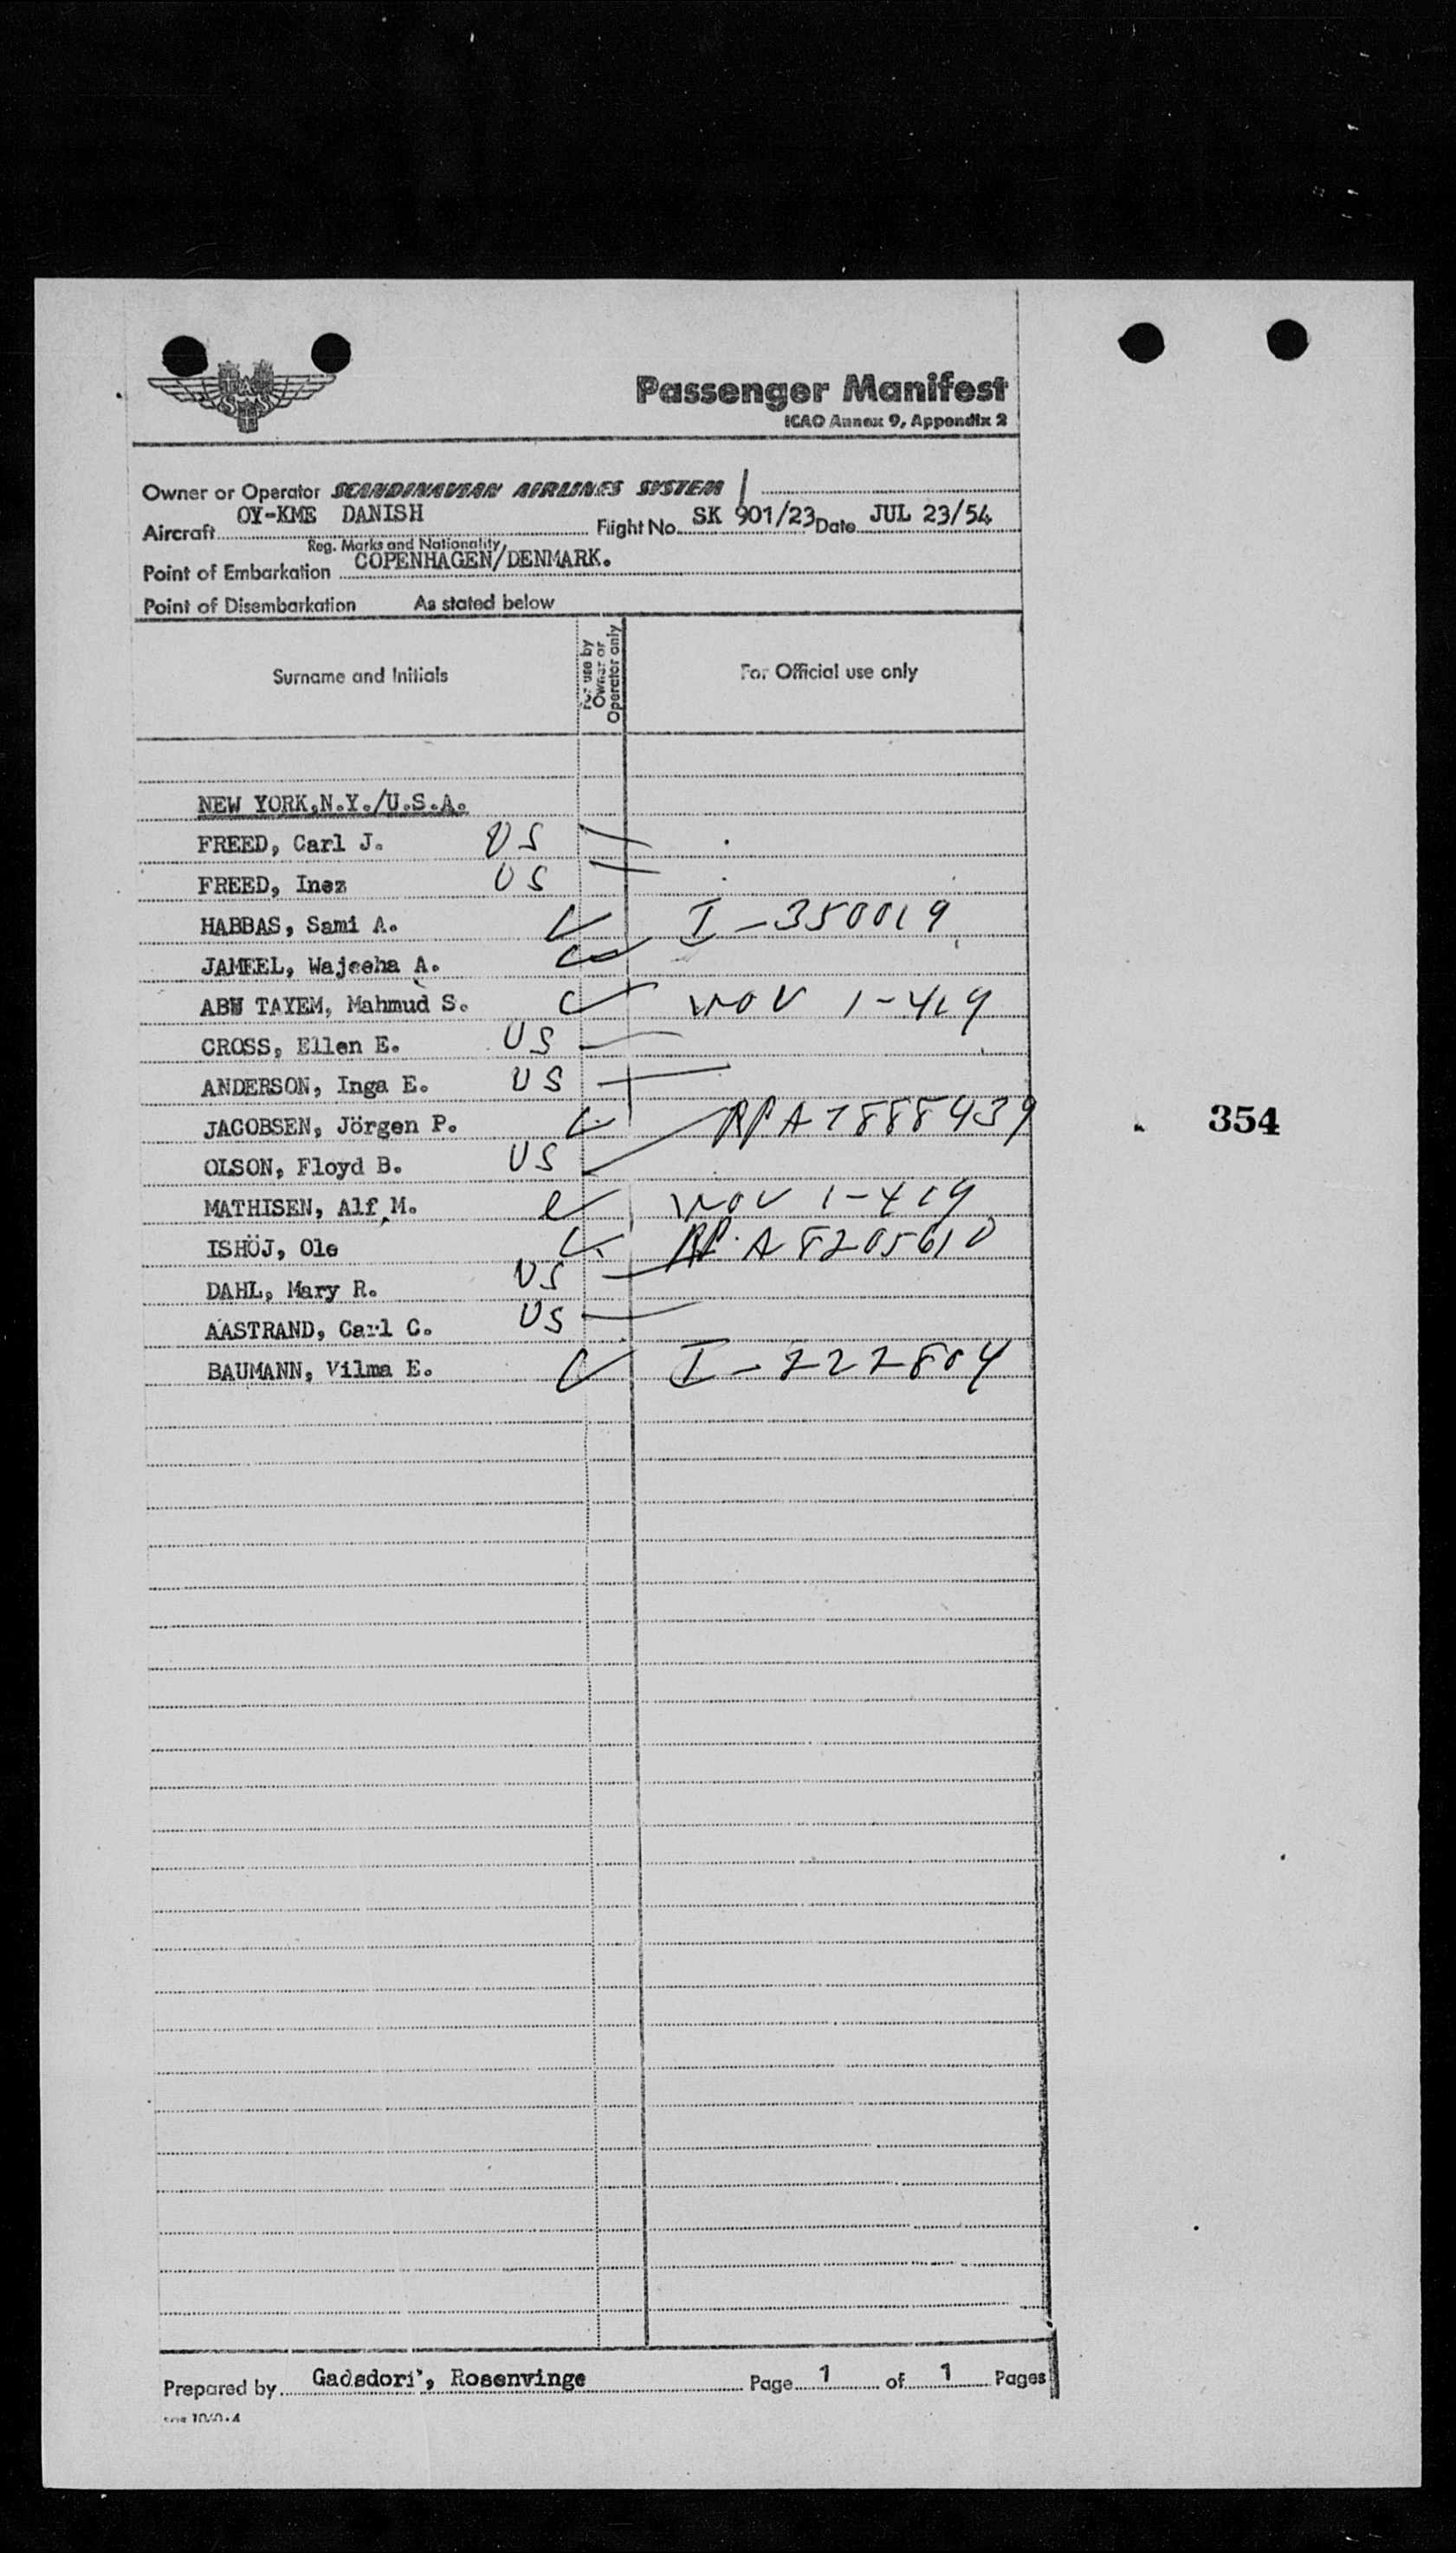 SAS
Passenger Manifest
ICAO Annex 9, Appendix 2
Owner or Operator SCANDINAVIAN AIRLINES SYSTEM
Aircraft OY-KME DANISH Flight No. SK 901/23 Date JUL 23/54
Reg. Marks and Nationality
Point of Embarkation COPENHAGEN/DENMARK.
Point of Disembarkation As stated below
Surname and Initials For use by Owner or Operator only For Official use only
NEW YORK,N.Y./U.S.A.
FREED, Carl J. US
FREED, Inez US
HABBAS, Sami A. I-350019
JAMEEL, Wajeeha A.
ABU TAYEM, Mahmud S. WOV 1-419
CROSS, Ellen E. US
ANDERSON, Inga E. US
JACOBSEN, Jörgen P. RP A7888439
354
OLSON, Floyd B. US
MATHISEN, Alf M. WOV 1-419
ISHÖJ, Ole RP. A 8205610
DAHL, Mary R. US
AASTRAND, Carl C. US
BAUMANN, Vilma E. I-222804
Prepared by Rosenvinge Page 1 of 1 Pages